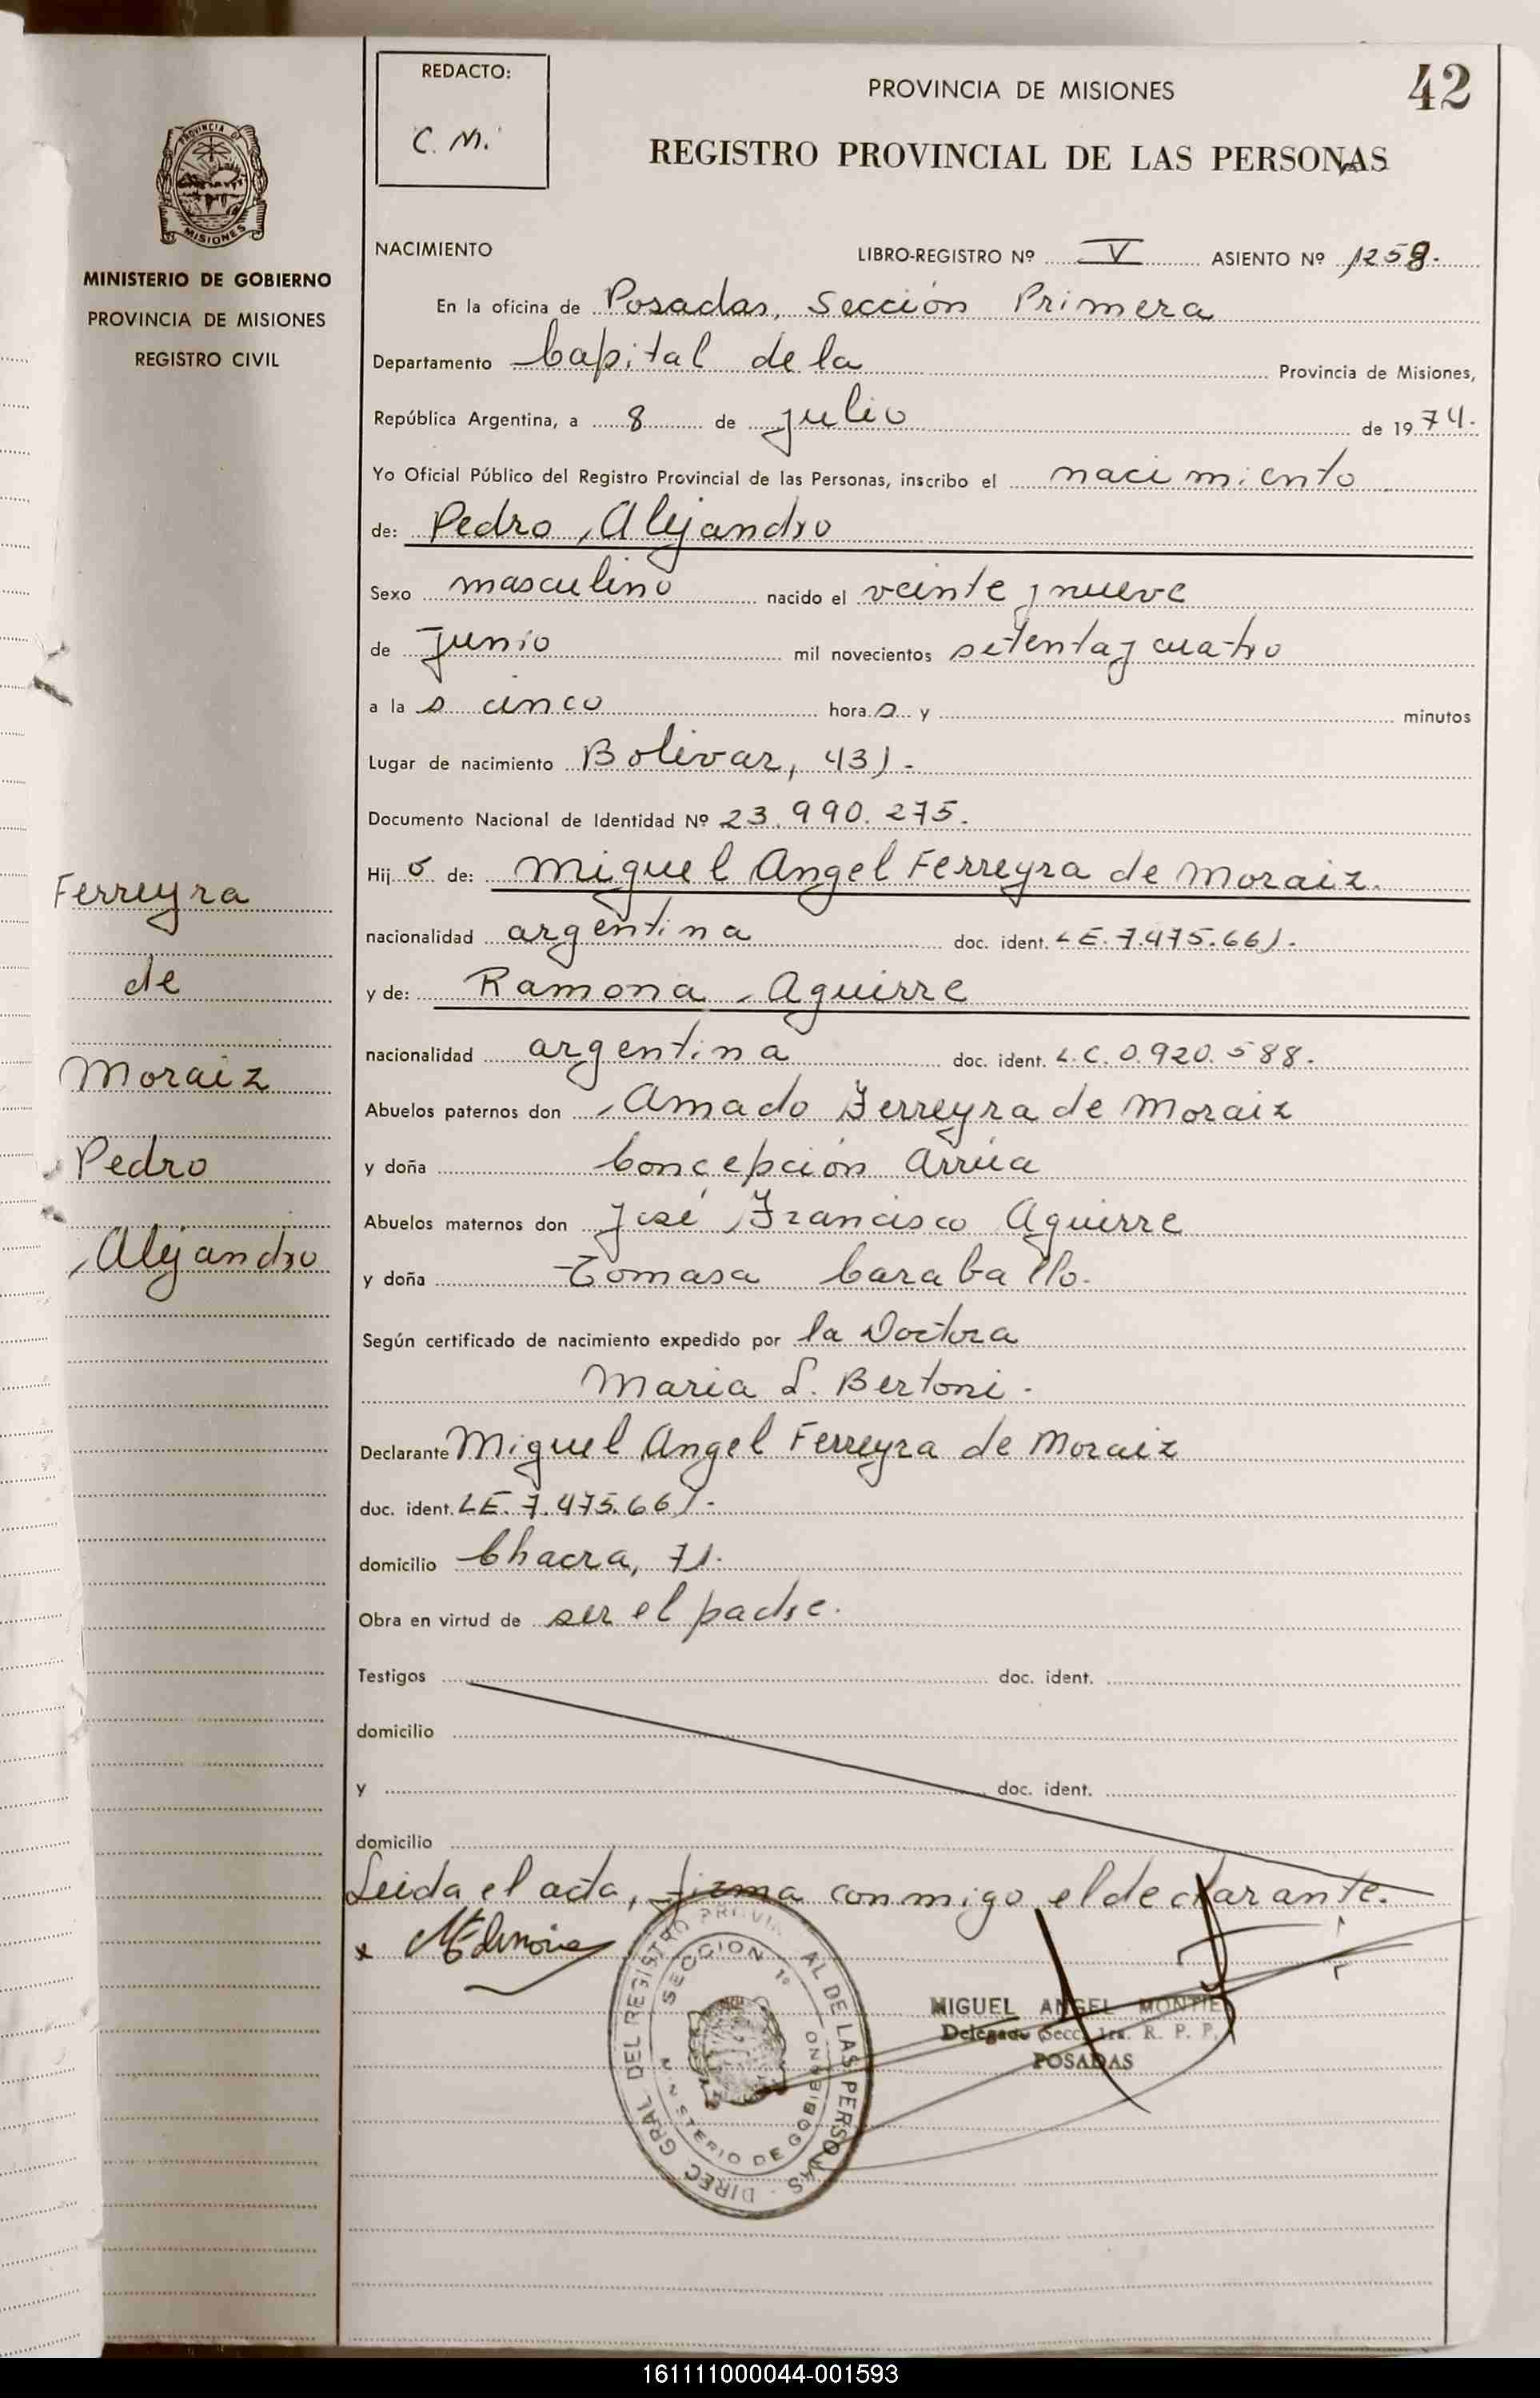 REDACTO:
C. M.
PROVINCIA DE MISIONES
42
REGISTRO PROVINCIAL DE LAS PERSONAS
PROVINCIA DE
MISIONES
MINISTERIO DE GOBIERNO
PROVINCIA DE MISIONES
REGISTRO CIVIL
NACIMIENTO LIBRO-REGISTRO Nº V ASIENTO Nº 1258.
En la oficina de Posadas, Sección Primera
Departamento Capital de la Provincia de Misiones,
República Argentina, a 8 de julio de 1974.
Yo Oficial Público del Registro Provincial de las Personas, inscribo el nacimiento
de: Pedro Alejandro
Sexo masculino nacido el veinte y nueve
de junio mil novecientos setenta y cuatro
a la s cinco hora s y minutos
Lugar de nacimiento Bolivar, 431.-
Documento Nacional de Identidad Nº 23.990.275.
Hij o de: Miguel Angel Ferreyra de Moraiz.
nacionalidad argentina doc. ident. L.E. 7.475.661.-
y de: Ramona Aguirre
nacionalidad argentina doc. ident. L.C. 0.920.588.
Abuelos paternos don Amado Ferreyra de Moraiz
y doña Concepción Arrúa
Abuelos maternos don José Francisco Aguirre
y doña Tomasa Caraballo.
Según certificado de nacimiento expedido por la Doctora
Maria L. Bertoni.
Declarante Miguel Angel Ferreyra de Moraiz
doc. ident. L.E. 7.475.661.-
domicilio Chacra, 71.
Obra en virtud de ser el padre.
Testigos doc. ident.
domicilio
y doc. ident.
domicilio
Leida el acta, firma conmigo el declarante.
Ferreyra
de
Moraiz
Pedro
Alejandro
DIREC GRAL DEL REGISTRO PROVINCIAL DE LAS PERSONAS
SECCION 1º
MINISTERIO DE GOBIERNO
MIGUEL ANGEL MONTIEL
Delegado Secc. 1ra. R. P. P.
POSADAS
161111000044-001593